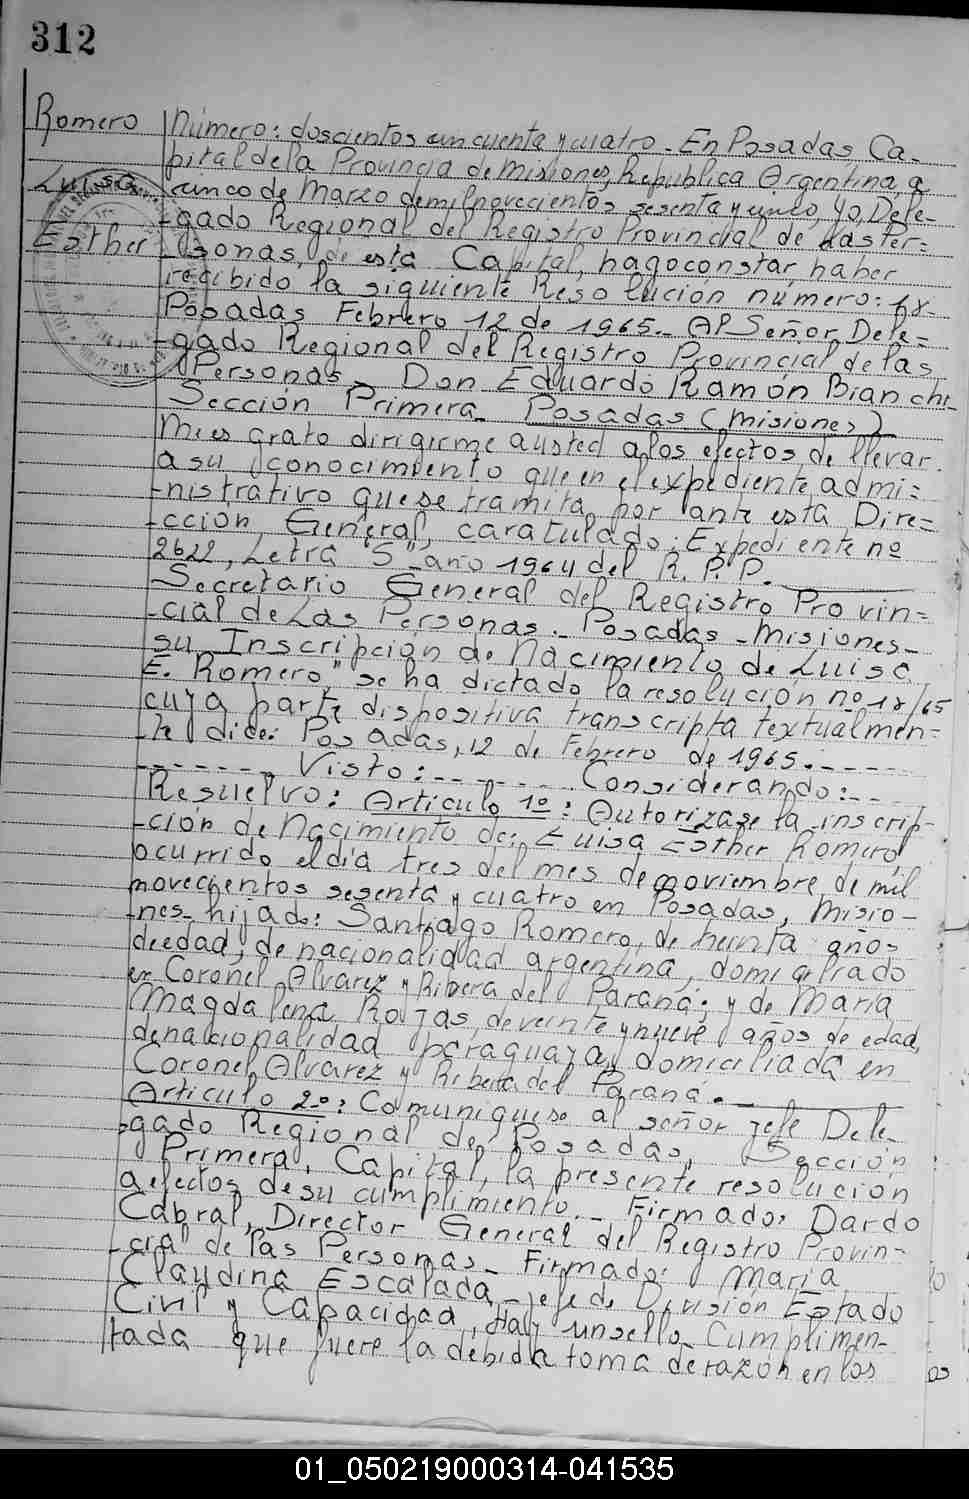 312
Romero
Luisa
Esther
Número: doscientos cincuenta y cuatro. En Posadas, Ca-
pital de la Provincia de Misiones, República Argentina, a
cinco de Marzo de mil novecientos sesenta y cinco, Yo, Dele-
-gado Regional del Registro Provincial de Las Per=
sonas, de esta Capital, hago constar haber
recibido la siguiente Resolución número: 18.
Posadas Febrero 12 de 1965.- Al Señor Dele=
-gado Regional del Registro Provincial de las
Personas- Don Eduardo Ramón Bianchi-
Sección Primera- Posadas (Misiones)
Me es grato dirigirme a usted a los efectos de llevar
a su conocimiento que en el expediente admi=
-nistrativo que se tramita por ante esta Dire=
-cción General, caratulado: Expediente nº
2622, Letra "S" año 1964 del R. P. P.
Secretario General del Registro Provin=
-cial de Las Personas.- Posadas - Misiones-
su Inscripción de Nacimiento de Luisa
E. Romero" se ha dictado la resolución nº 18/65
cuya parte dispositiva transcripta textualmen=
-te dice: Posadas, 12 de Febrero de 1965.-----
------- Visto: ------ Considerando: --
Resuelvo: Artículo 1º: Autorizase la inscrip-
-ción de Nacimiento de: Luisa Esther Romero
ocurrido el día tres del mes de noviembre de mil
novecientos sesenta y cuatro en Posadas, Misio-
-nes- hija de: Santiago Romero, de treinta años
de edad, de nacionalidad argentina, domiciliado
en Coronel Alvarez y Ribera del Paraná; y de María
Magdalena Rojas, de veinte y nueve años de edad,
de nacionalidad paraguaya, domiciliada en
Coronel Alvarez y Ribera del Paraná.-
Artículo 2º: Comuniquese al señor jefe Dele-
-gado Regional de Posadas, Sección
Primera, Capital, la presente resolución
a efectos de su cumplimiento.- Firmado: Dardo
Cabral, Director General del Registro Provin-
-cial de las Personas- Firmado: María
Claudina Escalada - jefe de División Estado
Civil y Capacidad, Hay un sello- Cumplimen-
tada que fuere la debida toma de razón en los
01_050219000314-041535